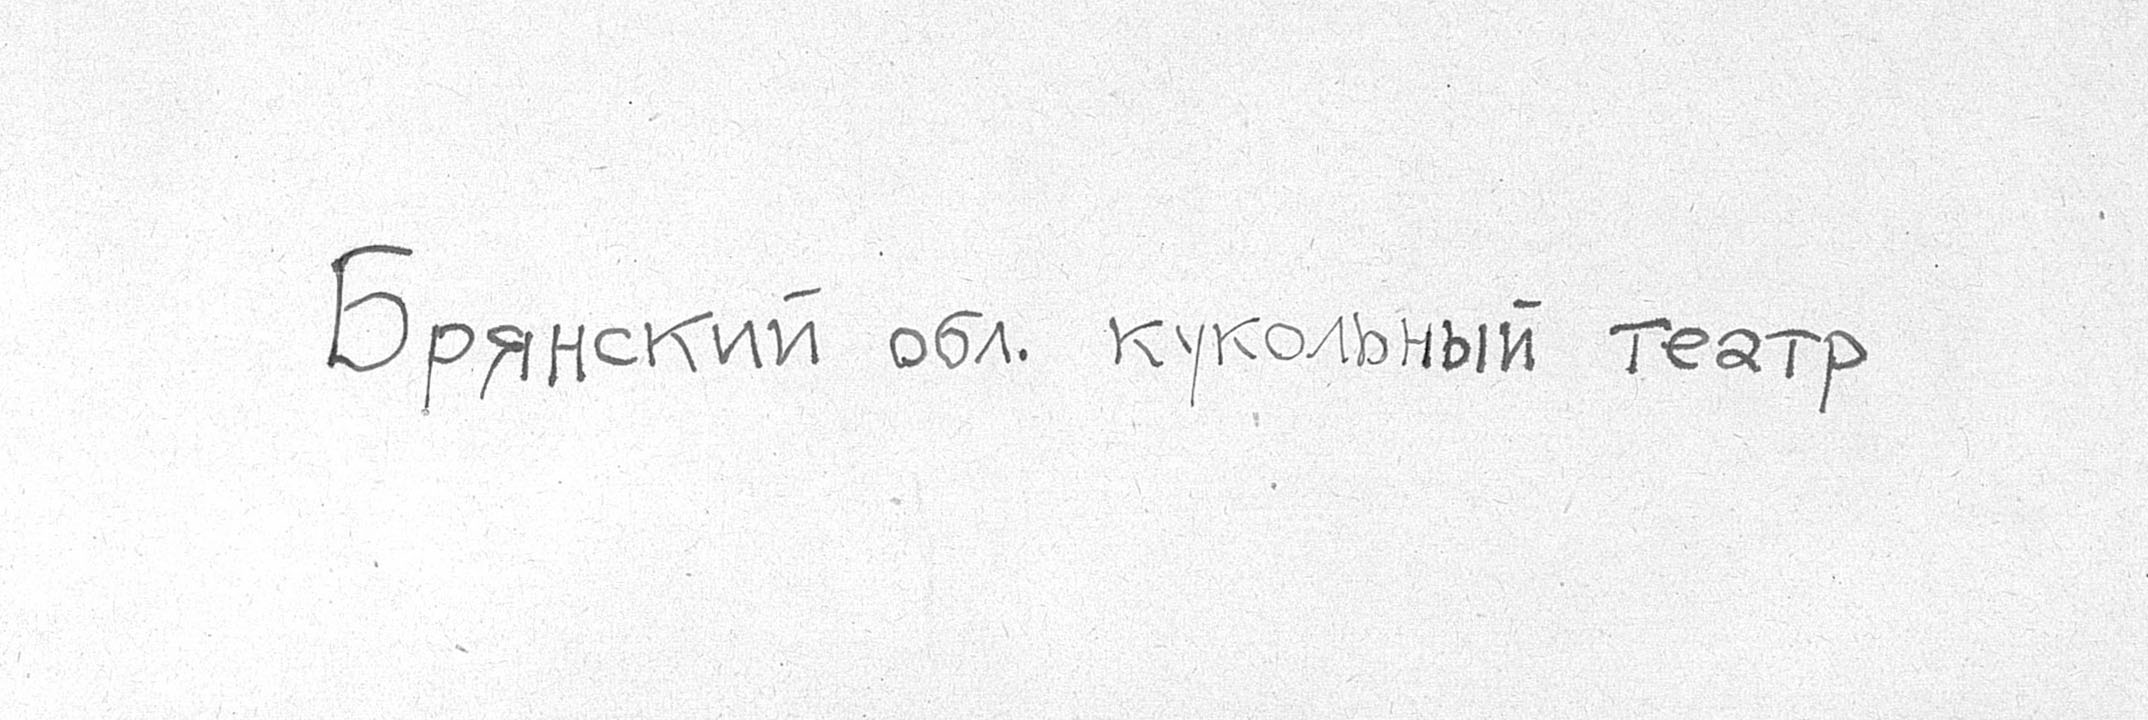 Брянский обл. кукольный театр